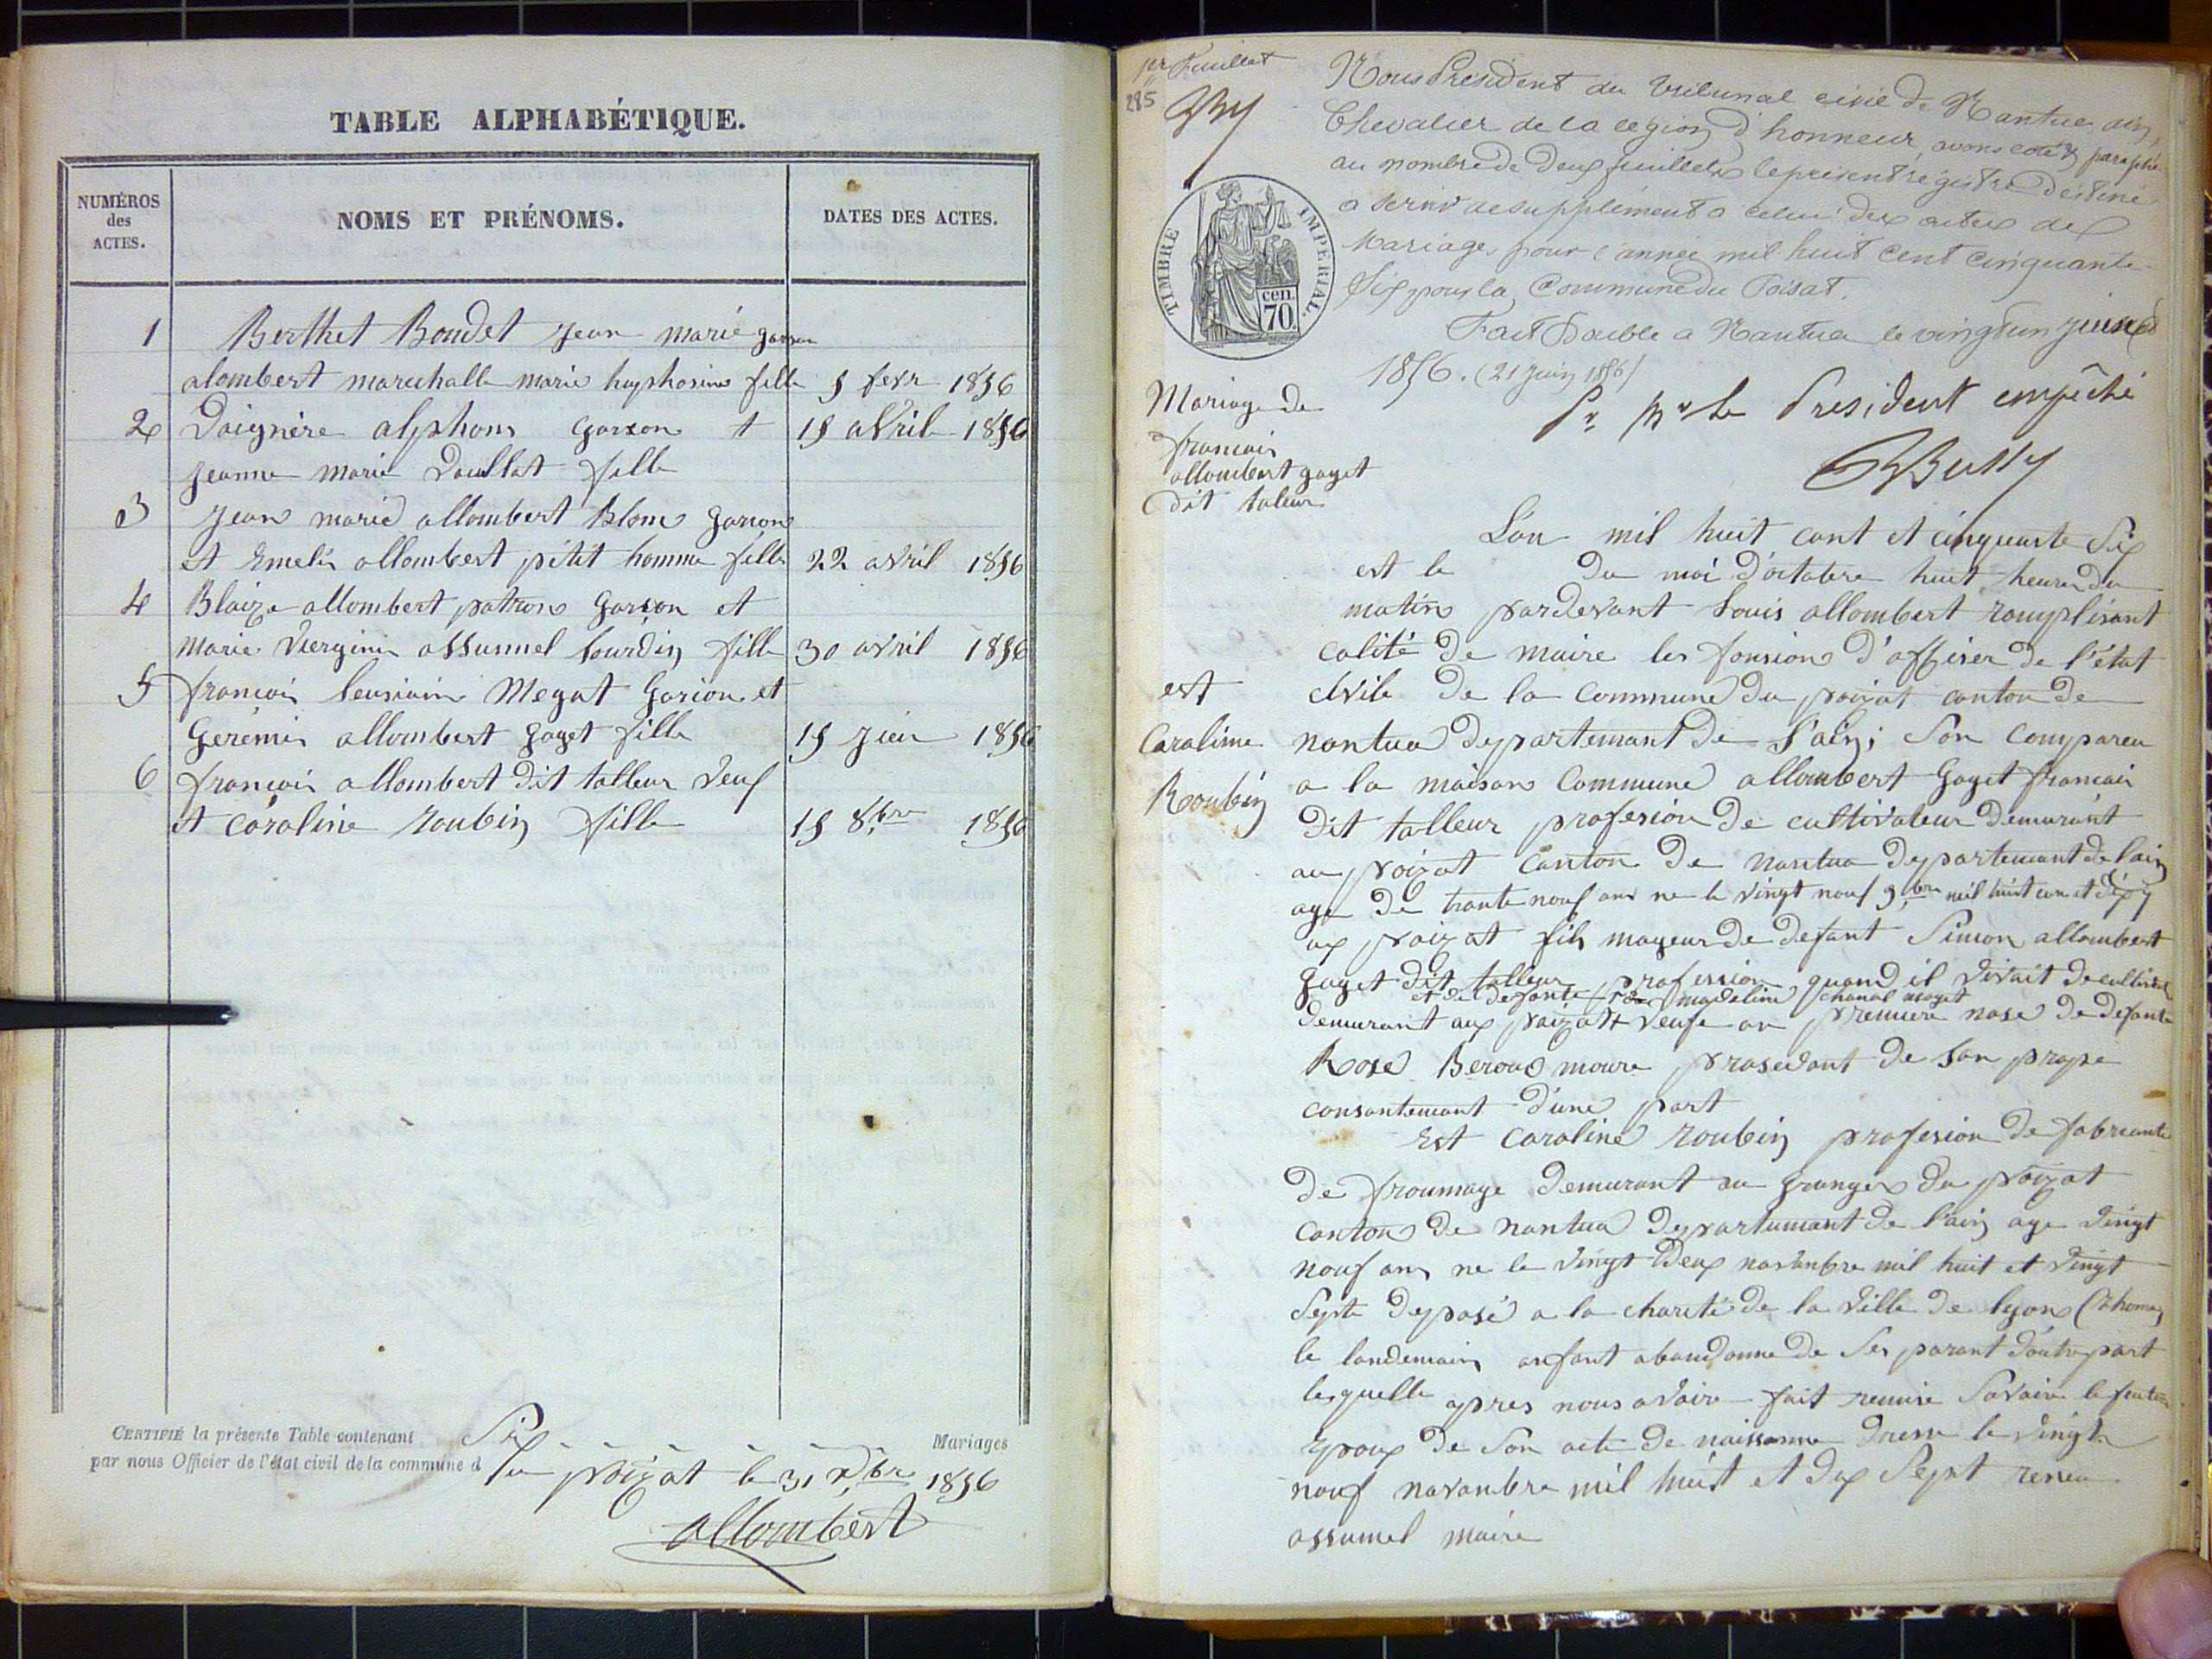 TABLE ALPHABÉTIQUE.
NUMÉROS
des
ACTES.
NOMS ET PRÉNOMS.
DATES DES ACTES.
1 Berthet Boudet jean marie garson
alombert marechalle marie huphosine fille 5 fevr 1856
2 Daignère alphons garson et 15 avril 1856
jeanne marie fille
3 jean marie allombert Blom garson
et Emelin allombert pitit homme fille 22 avril 1856
4 Blaize allombert patron garson et
marie viergini assumel lourdin fille 30 avril 1856
5 francois Megat garion et
Gerémi allombert gaget fille 15 juin 1856
6 francois allombert dit talleur veuf
et caroline roubin fille 15 8bre 1856
CERTIFIÉ la présente Table contenant Six Mariages
par nous Officier de l'état civil de la commune d
du poizat le 31 Xbre 1856
allombert
1er feuillet
285
Nous President du Tribunal civil de Nantua, ain,
Chevalier de la légion d'honneur, avons coté & paraphé
au nombre de deux feuillets le présent régistre destiné
à servir de supplément à celui des actes de
Mariage, pour l'année mil huit cent cinquante
Six pour la Commune du Poisat.
Fait Double a Nantua le vingt un juin
1856. (21 juin 1856)
Pr Mr le President empêché
BBully
TIMBRE IMPERIAL.
cen.
70.
Mariage de
francois
allombert gaget
dit taleur
est
Caraline
Roubin
L'an mil huit cant et cinquante Six
est le du moi d'octobre huit heure du
matin pardevant Louis allombert ramplisant
calité de maire les fonsions d'affiser de l'état
civile de la commune du poizat canton de
nantua departemant de l'ain; son compareu
a la maison commune allombert gaget francois
dit talleur profesion de cultivateur demurant
au poizat canton de nantua departemant de l'ain
age de trante nouf ans ne le vingt nouf 9bre mil huit cen et
au poizat fils mageur de defant Simon allombert
gaget dit talleur profession quand il vivait de cultivat
et de defante magdeline chanal moget
demurant aux paizat veufe an premiere nose de defante
Rose Beroud moure prosedant de son prope
consantemant d'une part
Est caroline roubin profesion de fabricante
de froumage demurant au granges du poizat
canton de nantua departumant de l'ain age vingt
nouf ans ne le vingt deux novanbre mil huit et vingt
Sept deposé a la charité de la ville de lyon (Rhone)
le landemain anfant abandonne de ses parant d'autre part
lesquelle apres nous avoir fait remise savoir le futur
epoux de son acte de naissance dresse le vingt
nouf novanbre mil huit et dix Sept reseu
assumel maire